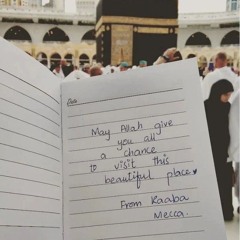 Date
May Allah give
you all
a chance
to visit this
beautiful place♥
From Kaaba
Mecca.